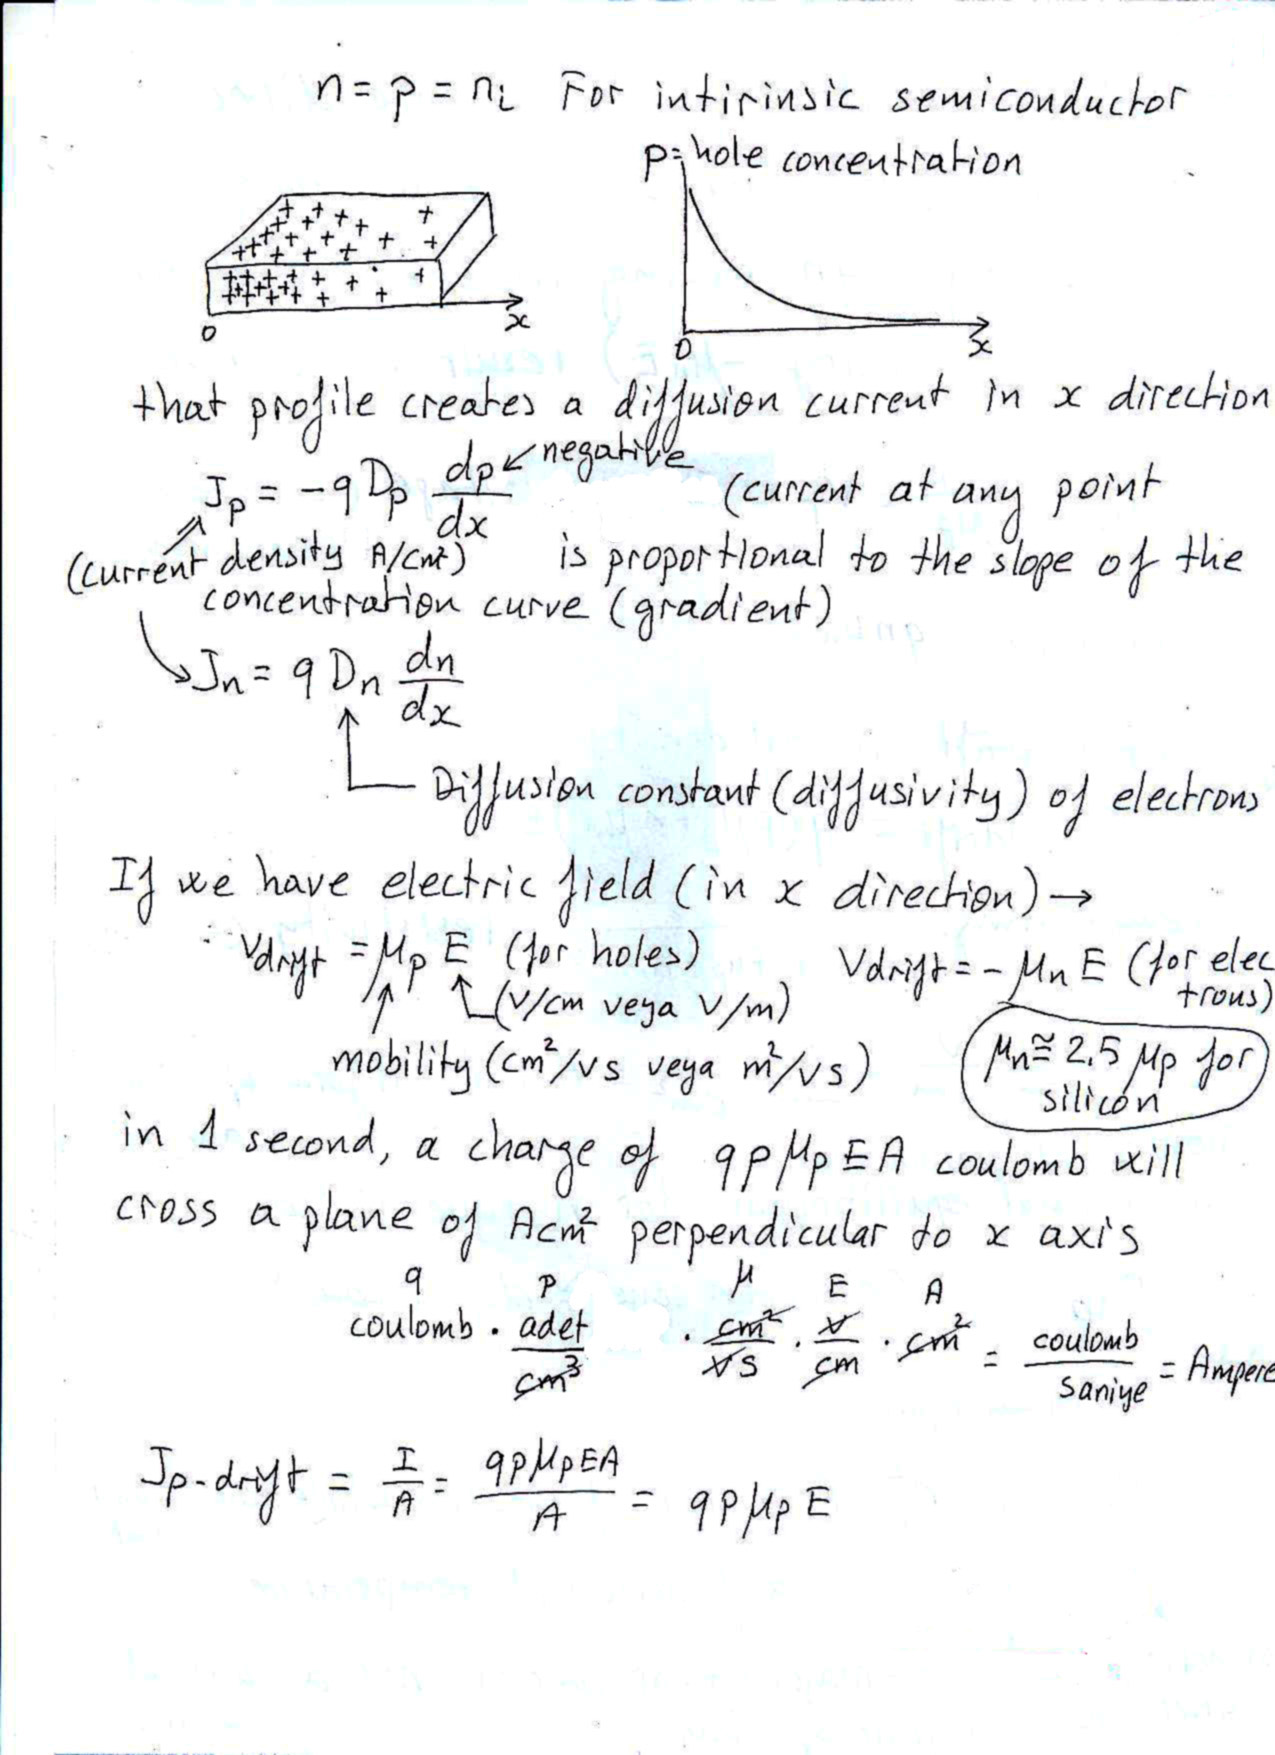 n = p = ni For intirinsic semiconductor
p = hole concentration
0 x
0 x
that profile creates a diffusion current in x direction
Jp = -q Dp dp/dx ↙ negative (current at any point
(current density A/cm²) is proportional to the slope of the
concentration curve (gradient)
Jn = q Dn dn/dx
Diffusion constant (diffusivity) of electrons
If we have electric field (in x direction) →
Vdrift = μp E (for holes) Vdrift = - μn E (for elec
trons)
(V/cm veya V/m)
mobility (cm²/vs veya m²/vs)
μn ≅ 2.5 μp for
silicon
in 1 second, a charge of qpμpEA coulomb will
cross a plane of Acm² perpendicular to x axis
q p μ E A
coulomb · adet/cm³ · cm²/vs · v/cm · cm² = coulomb/saniye = Ampere
Jp-drift = I/A = qpμpEA/A = qpμpE